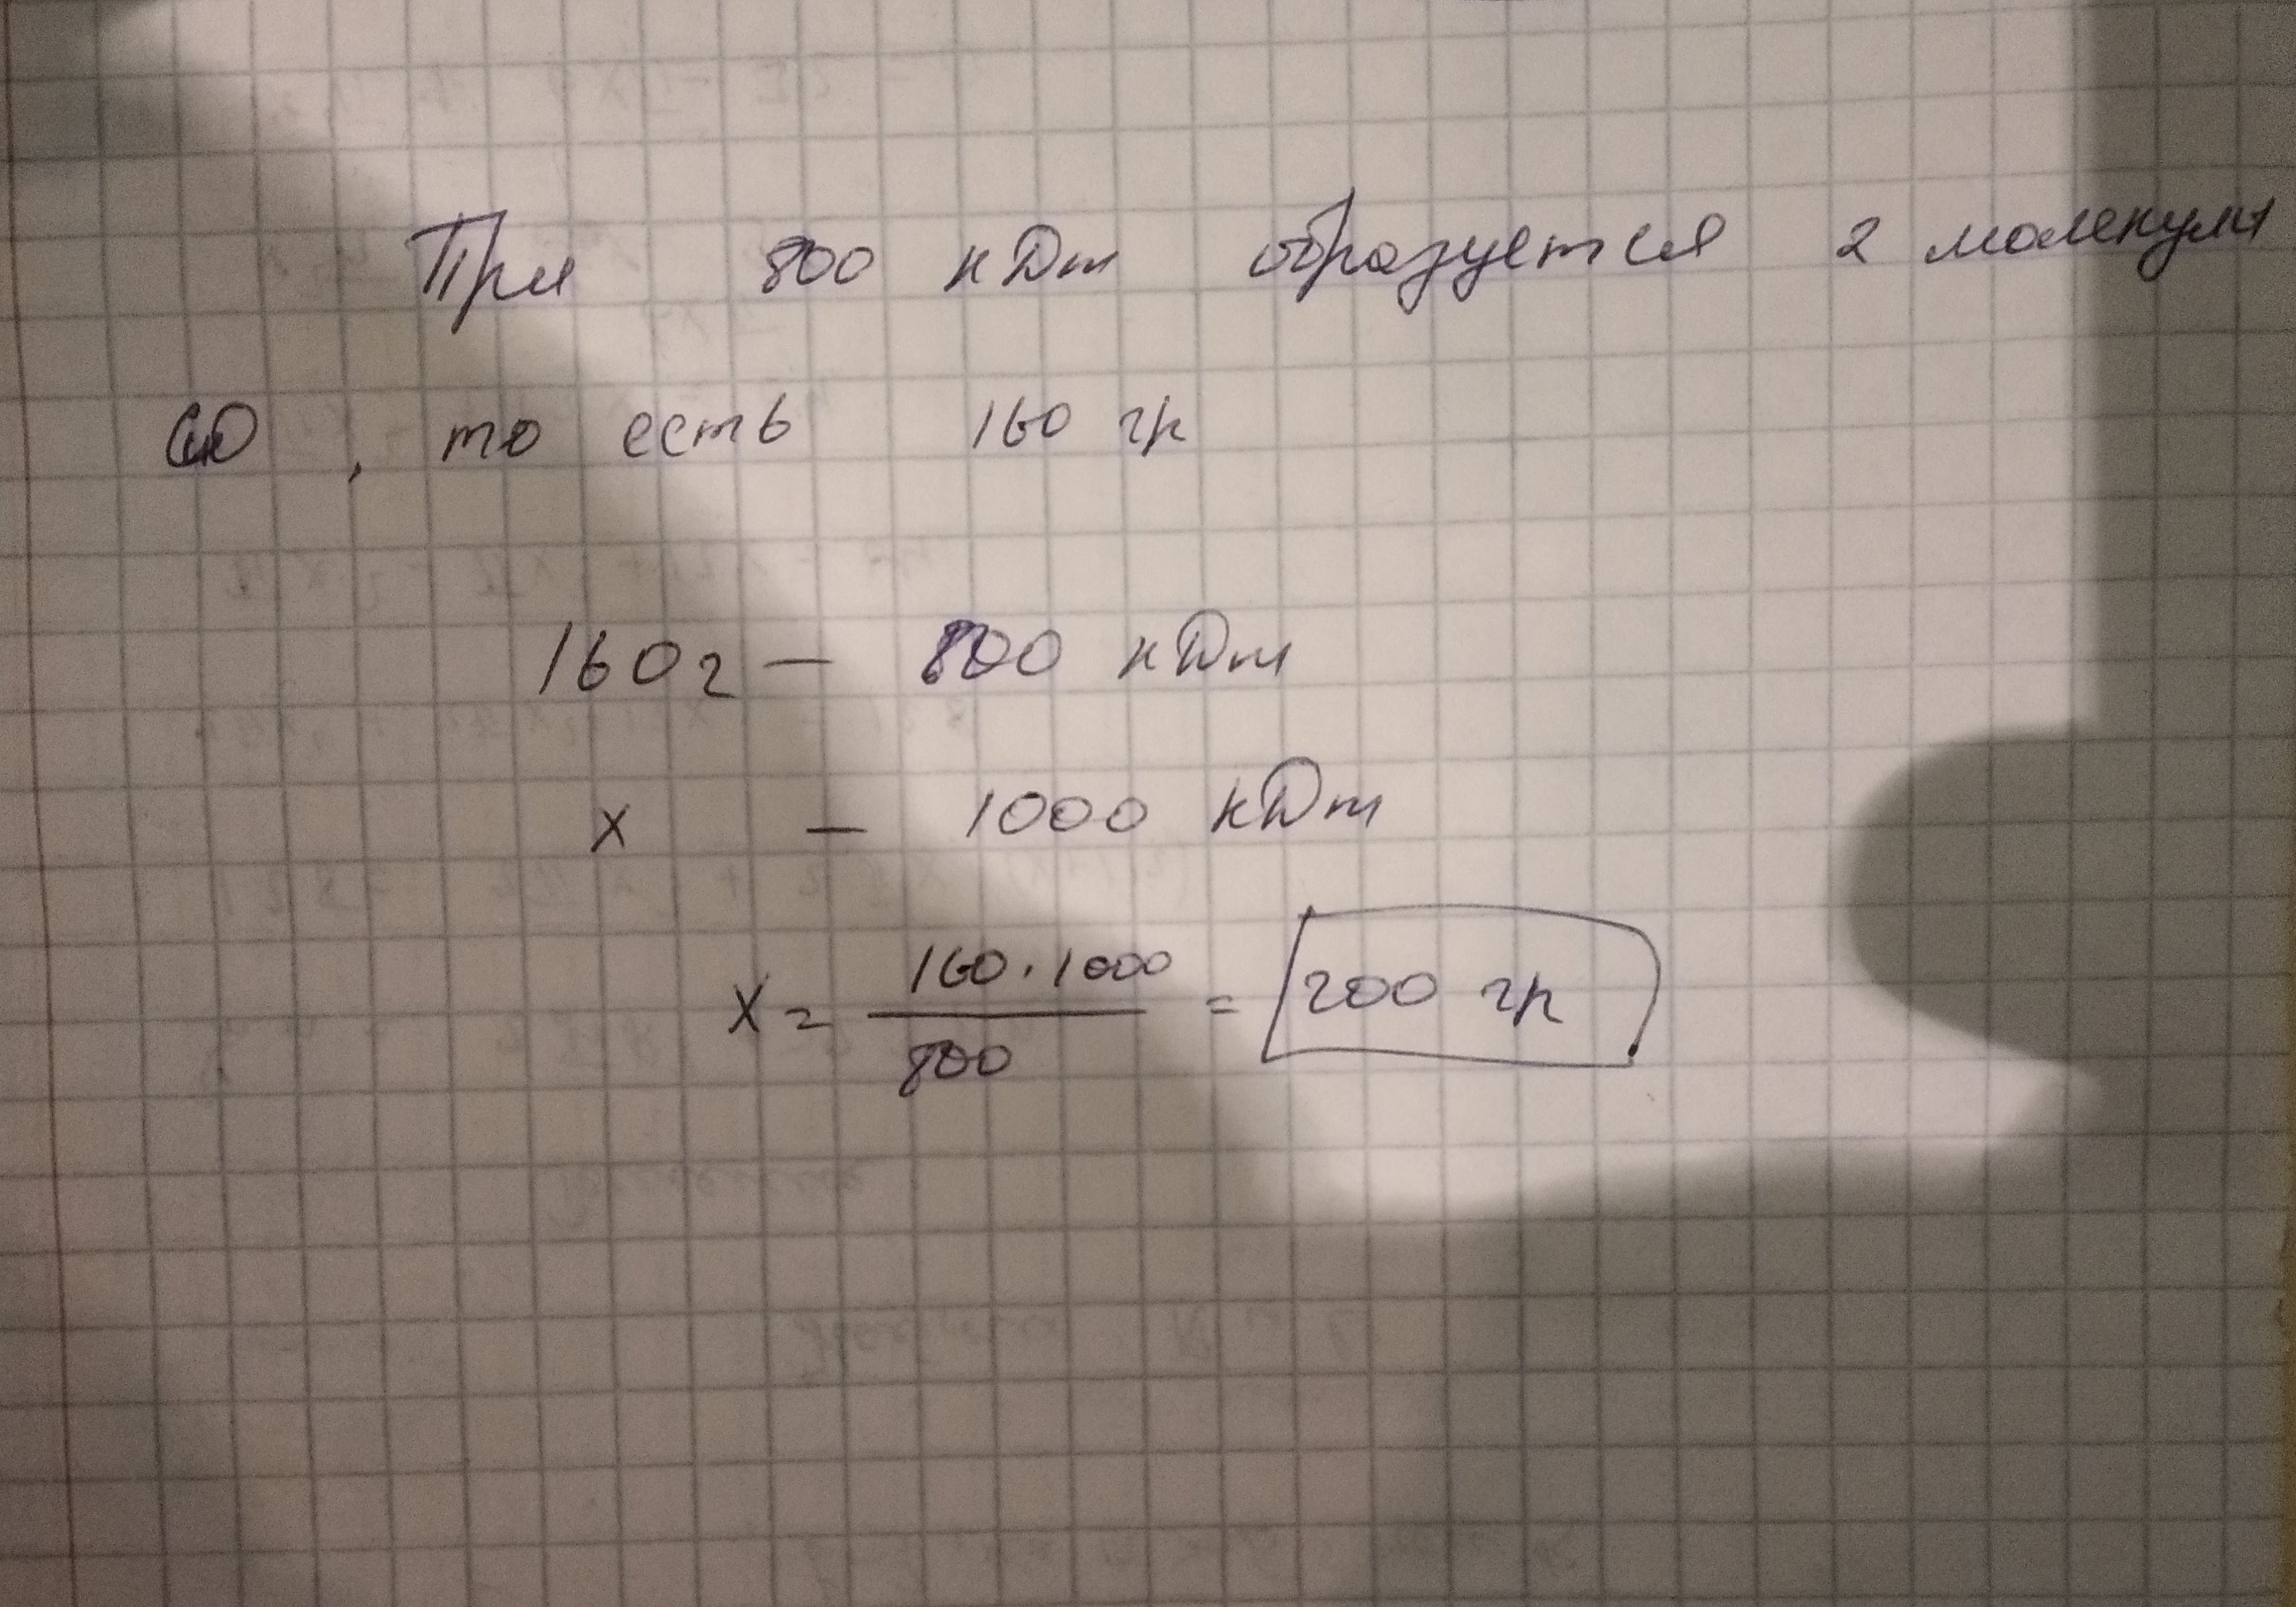 При 800 кДж образуется 2 молекулы
CuO, то есть 160 гр
160г — 800 кДж
x — 1000 кДж
x = 160 · 1000 / 800 = 200 гр